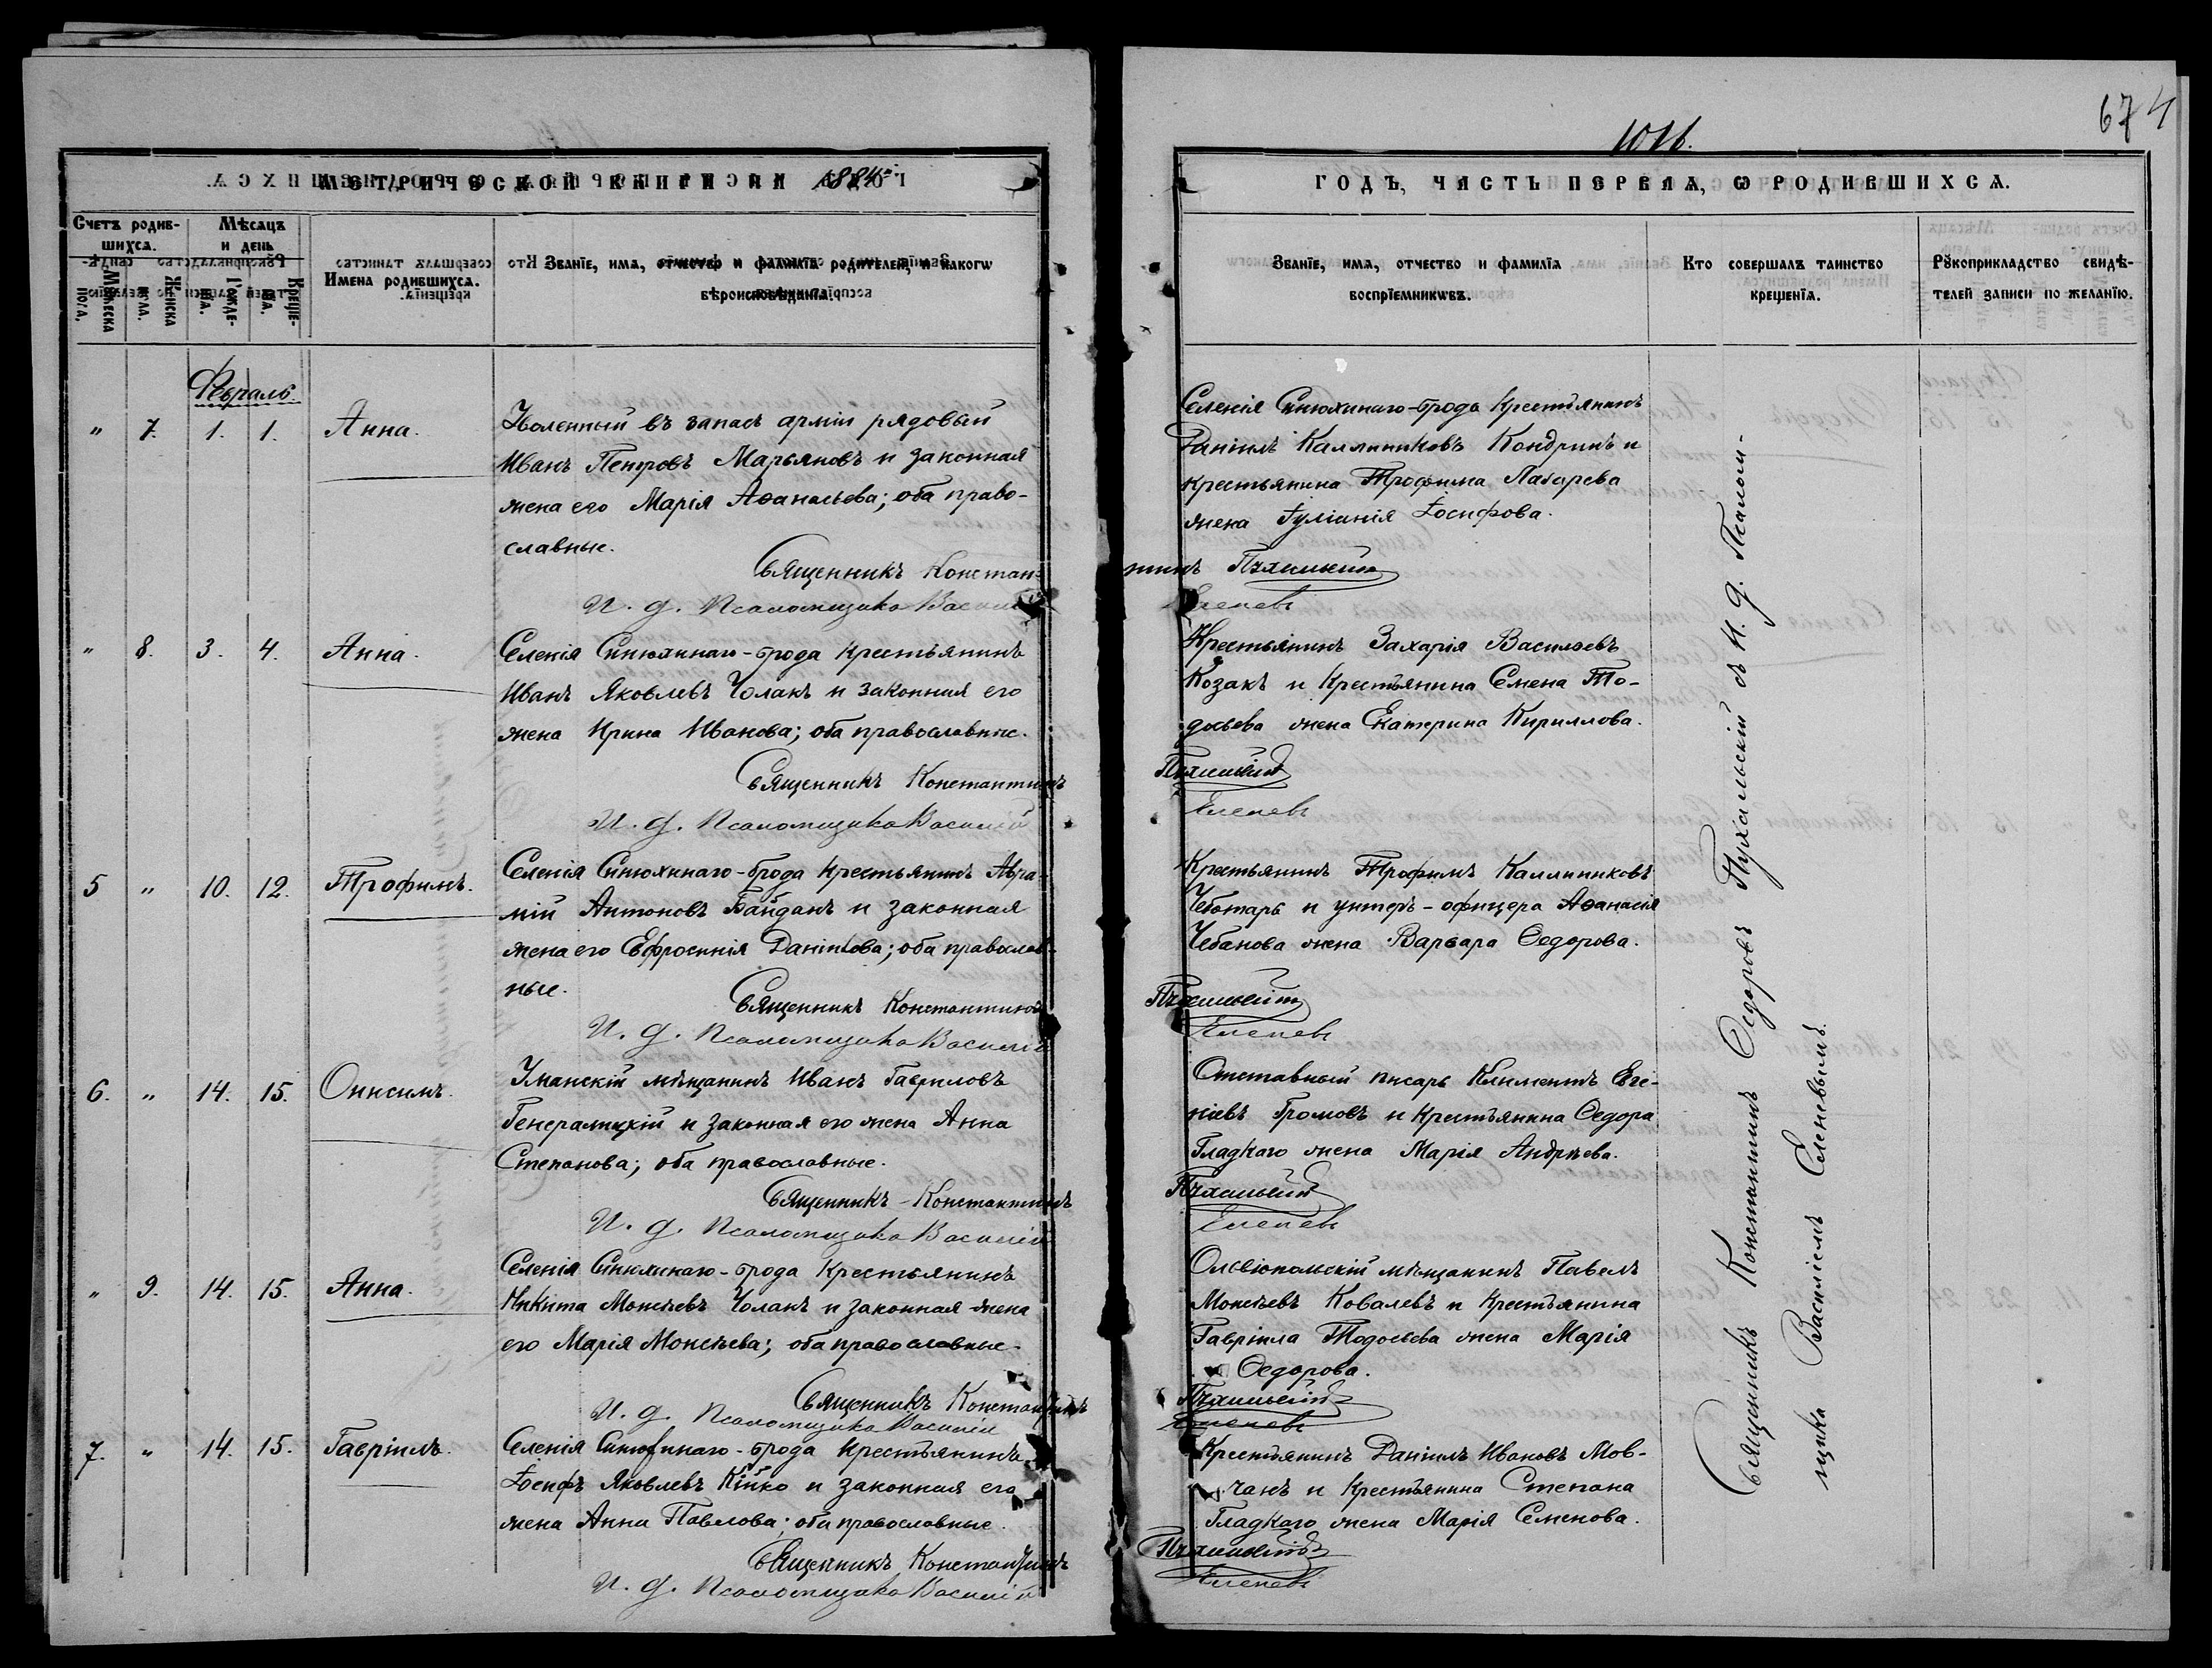 674
1016.
МЕТРИЧЕСКОЙ КНИГИ НА 1884й
ГОДЪ, ЧАСТЬ ПЕРВАѦ, Ѡ РОДИВШИХСѦ.
Счетъ родив-
шихсѧ.
Мужеска
пола.
Женска
пола.
Мѣсѧцъ
и день
Рожде-
нїѧ.
Креще-
нїѧ.
Имена родившихсѧ.
Званїе, имѧ, отчество и фамилїѧ родителей, и какогѡ
вѣроисповѣданїѧ.
Званїе, имѧ, отчество и фамилїѧ
воспрїемникѡвъ.
Кто совершалъ таинство
крещенїѧ.
Рꙋкоприкладство свидѣ-
телей записи по желанїю.
Февраль.
" 7. 1. 1. Анна.
Уволенный въ запасъ арміи рядовый
Иванъ Петровъ Марьяновъ и законная
жена его Марія Аѳанасьева; оба право-
славные.
Священникъ Констан-
И. д. Псаломщика Василій
Селенія Синюхинаго-брода крестьянинъ
Даніилъ Каллиниковъ Кондринъ и
крестьянина Трофима Лазарева
жена Іуліанія Іосифова.
тинъ
" 8. 3. 4. Анна.
Селенія Синюхинаго-брода крестьянинъ
Иванъ Яковлевъ Чоланъ и законная его
жена Ирина Иванова; оба православные.
Священникъ Константинъ
И. д. Псаломщика Василій
Крестьянинъ Захарія Васильевъ
Козакъ и крестьянина Семена То-
досьева жена Екатерина Кириллова.
5 " 10. 12. Трофимъ.
Селенія Синюхинаго-брода крестьянинъ Авра-
мій Антоновъ Байданъ и законная
жена его Евфросинія Даніилова; оба православ-
ные.
Священникъ Константинъ
И. д. Псаломщика Василій
Крестьянинъ Трофимъ Каллиниковъ
Чеботарь и унтеръ-офицера Аѳанасія
Чебанова жена Варвара Ѳедорова.
6. " 14. 15. Онисимъ.
Уманскій мѣщанинъ Иванъ Гавриловъ
Генералицкій и законная его жена Анна
Степанова; оба православные.
Священникъ Константинъ
И. д. Псаломщика Василій
Отставный писарь Климентъ Евге-
ніевъ Громовъ и крестьянина Ѳедора
Гладкаго жена Марія Андрѣева.
" 9. 14. 15. Анна.
Селенія Синюхинаго-брода крестьянинъ
Никита Моисѣевъ Чоланъ и законная жена
его Марія Моисѣева; оба православные.
Священникъ Константинъ
И. д. Псаломщика Василій
Ольвіопольскій мѣщанинъ Павелъ
Моисѣевъ Ковалевъ и крестьянина
Гавріила Тодосьева жена Марія
Ѳедорова.
7. " 14. 15. Гавріилъ.
Селенія Синюхинаго-брода крестьянинъ
Іосифъ Яковлевъ Кійко и законная его
жена Анна Павлова; оба православные.
Священникъ Константинъ
И. д. Псаломщика Василій
Крестьянинъ Даніилъ Ивановъ Мов-
чанъ и крестьянина Степана
Гладкаго жена Марія Семенова.
Священникъ Константинъ Ѳедоровъ Пухальскій съ И. д. Псалом-
щика Василіемъ Еленевымъ.